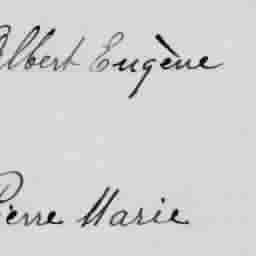 Albert Eugène
Pierre Marie